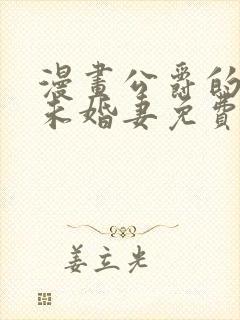 漫畫公爵的
未婚妻免費
姜立光